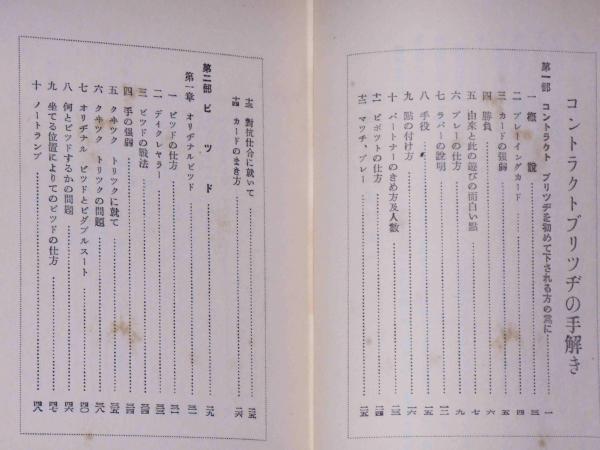 コントラクトブリツヂの手解き
第一部 コントラクト ブリツヂを初めて下される方の爲に……一
一 槪說……三
二 プレーイングカード……四
三 カードの强弱……五
四 勝負……六
五 由來と此の遊びの面白い點……七
六 プレーの仕方……九
七 ラバーの說明……一二
八 手役……一五
九 點の付け方……一六
十 パートナーのきめ方及人數……二三
十一 ピボツトの仕方……二四
十二 マツチ、プレー……二五
十三 對抗仕合に就いて……二五
十四 カードのまき方……二六
第二部 ビツド……二九
第一章 オリヂナルビツド……三一
一 ビツドの仕方……三一
二 デイクレヤラー……三三
三 ビツドの戰法……三四
四 手の强弱……三四
五 クヰツク トリツクに就て……三五
六 クヰツク トリツクの問題……三八
七 オリヂナル ビツドとビダブルスート……四〇
八 何とビツドするかの問題……四六
九 坐てる位置によりてのビツドの仕方……四七
十 ノートランプ……四八